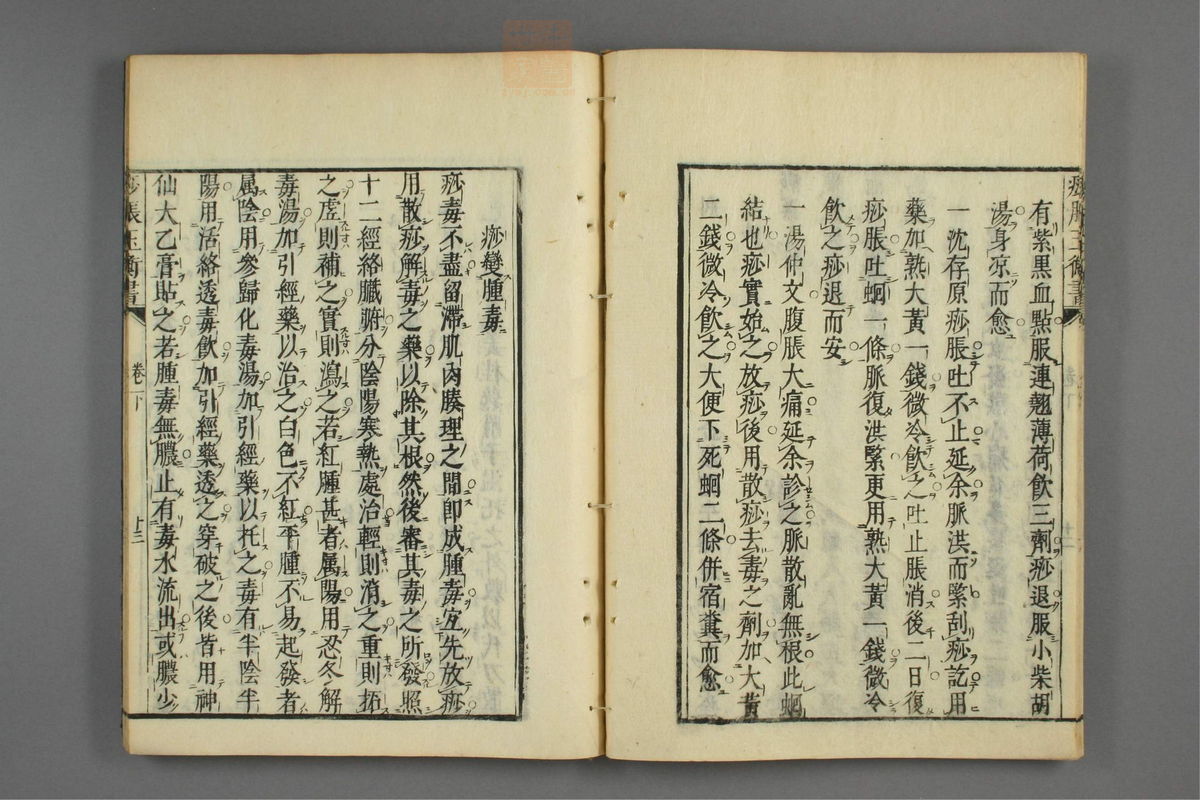 痧脹玉衡書
有紫黒血點服連翹薄荷飲三劑痧退服小柴胡
湯身凉而愈
一沈存原痧脹吐不止延余脈洪而緊刮痧訖用
藥加熟大黄一錢微冷飲之吐止脹消後二日復
痧脹吐蛔一條脈復洪緊更用熟大黄一錢微冷
飲之痧退而安
一湯仲文腹脹大痛延余診之脈散亂無根此蛔
結也痧實始之放痧後用散痧去毒之劑加大黄
二錢微冷飲之大便下死蛔二條併宿糞而愈
痧變腫毒
痧毒不盡留滯肌肉腠理之間卽成腫毒宜先放痧
用散痧解毒之藥以除其根然後審其毒之所發照
十二經絡臓腑分陰陽寒熱處治輕則消之重則拓
之虛則補之實則瀉之若紅腫甚者属陽用忍冬解
毒湯加引經藥以治之白色不紅平腫不易起發者
属陰用參歸化毒湯加引經藥以托之毒有半陰半
陽用活絡透毒飲加引經藥透之穿破之後皆用神
仙大乙膏貼之若腫毒無膿止有毒水流出或膿少
痧脹玉衡書 卷下 廿三